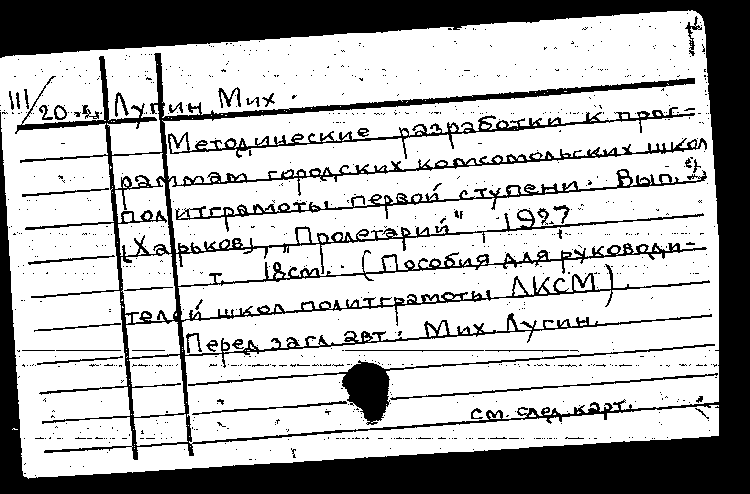 III/20.5. Лугин, Мих.
Методические разработки к прог-
раммам городских комсомольских школ
политграмоты первой ступени. Вып.
[Харьков], „Пролетарий“, 1927
т. 18см. (Пособия для руководи-
телей школ политграмоты ЛКСМ).
Перед загл. авт.: Мих. Лугин.
см. след. карт.